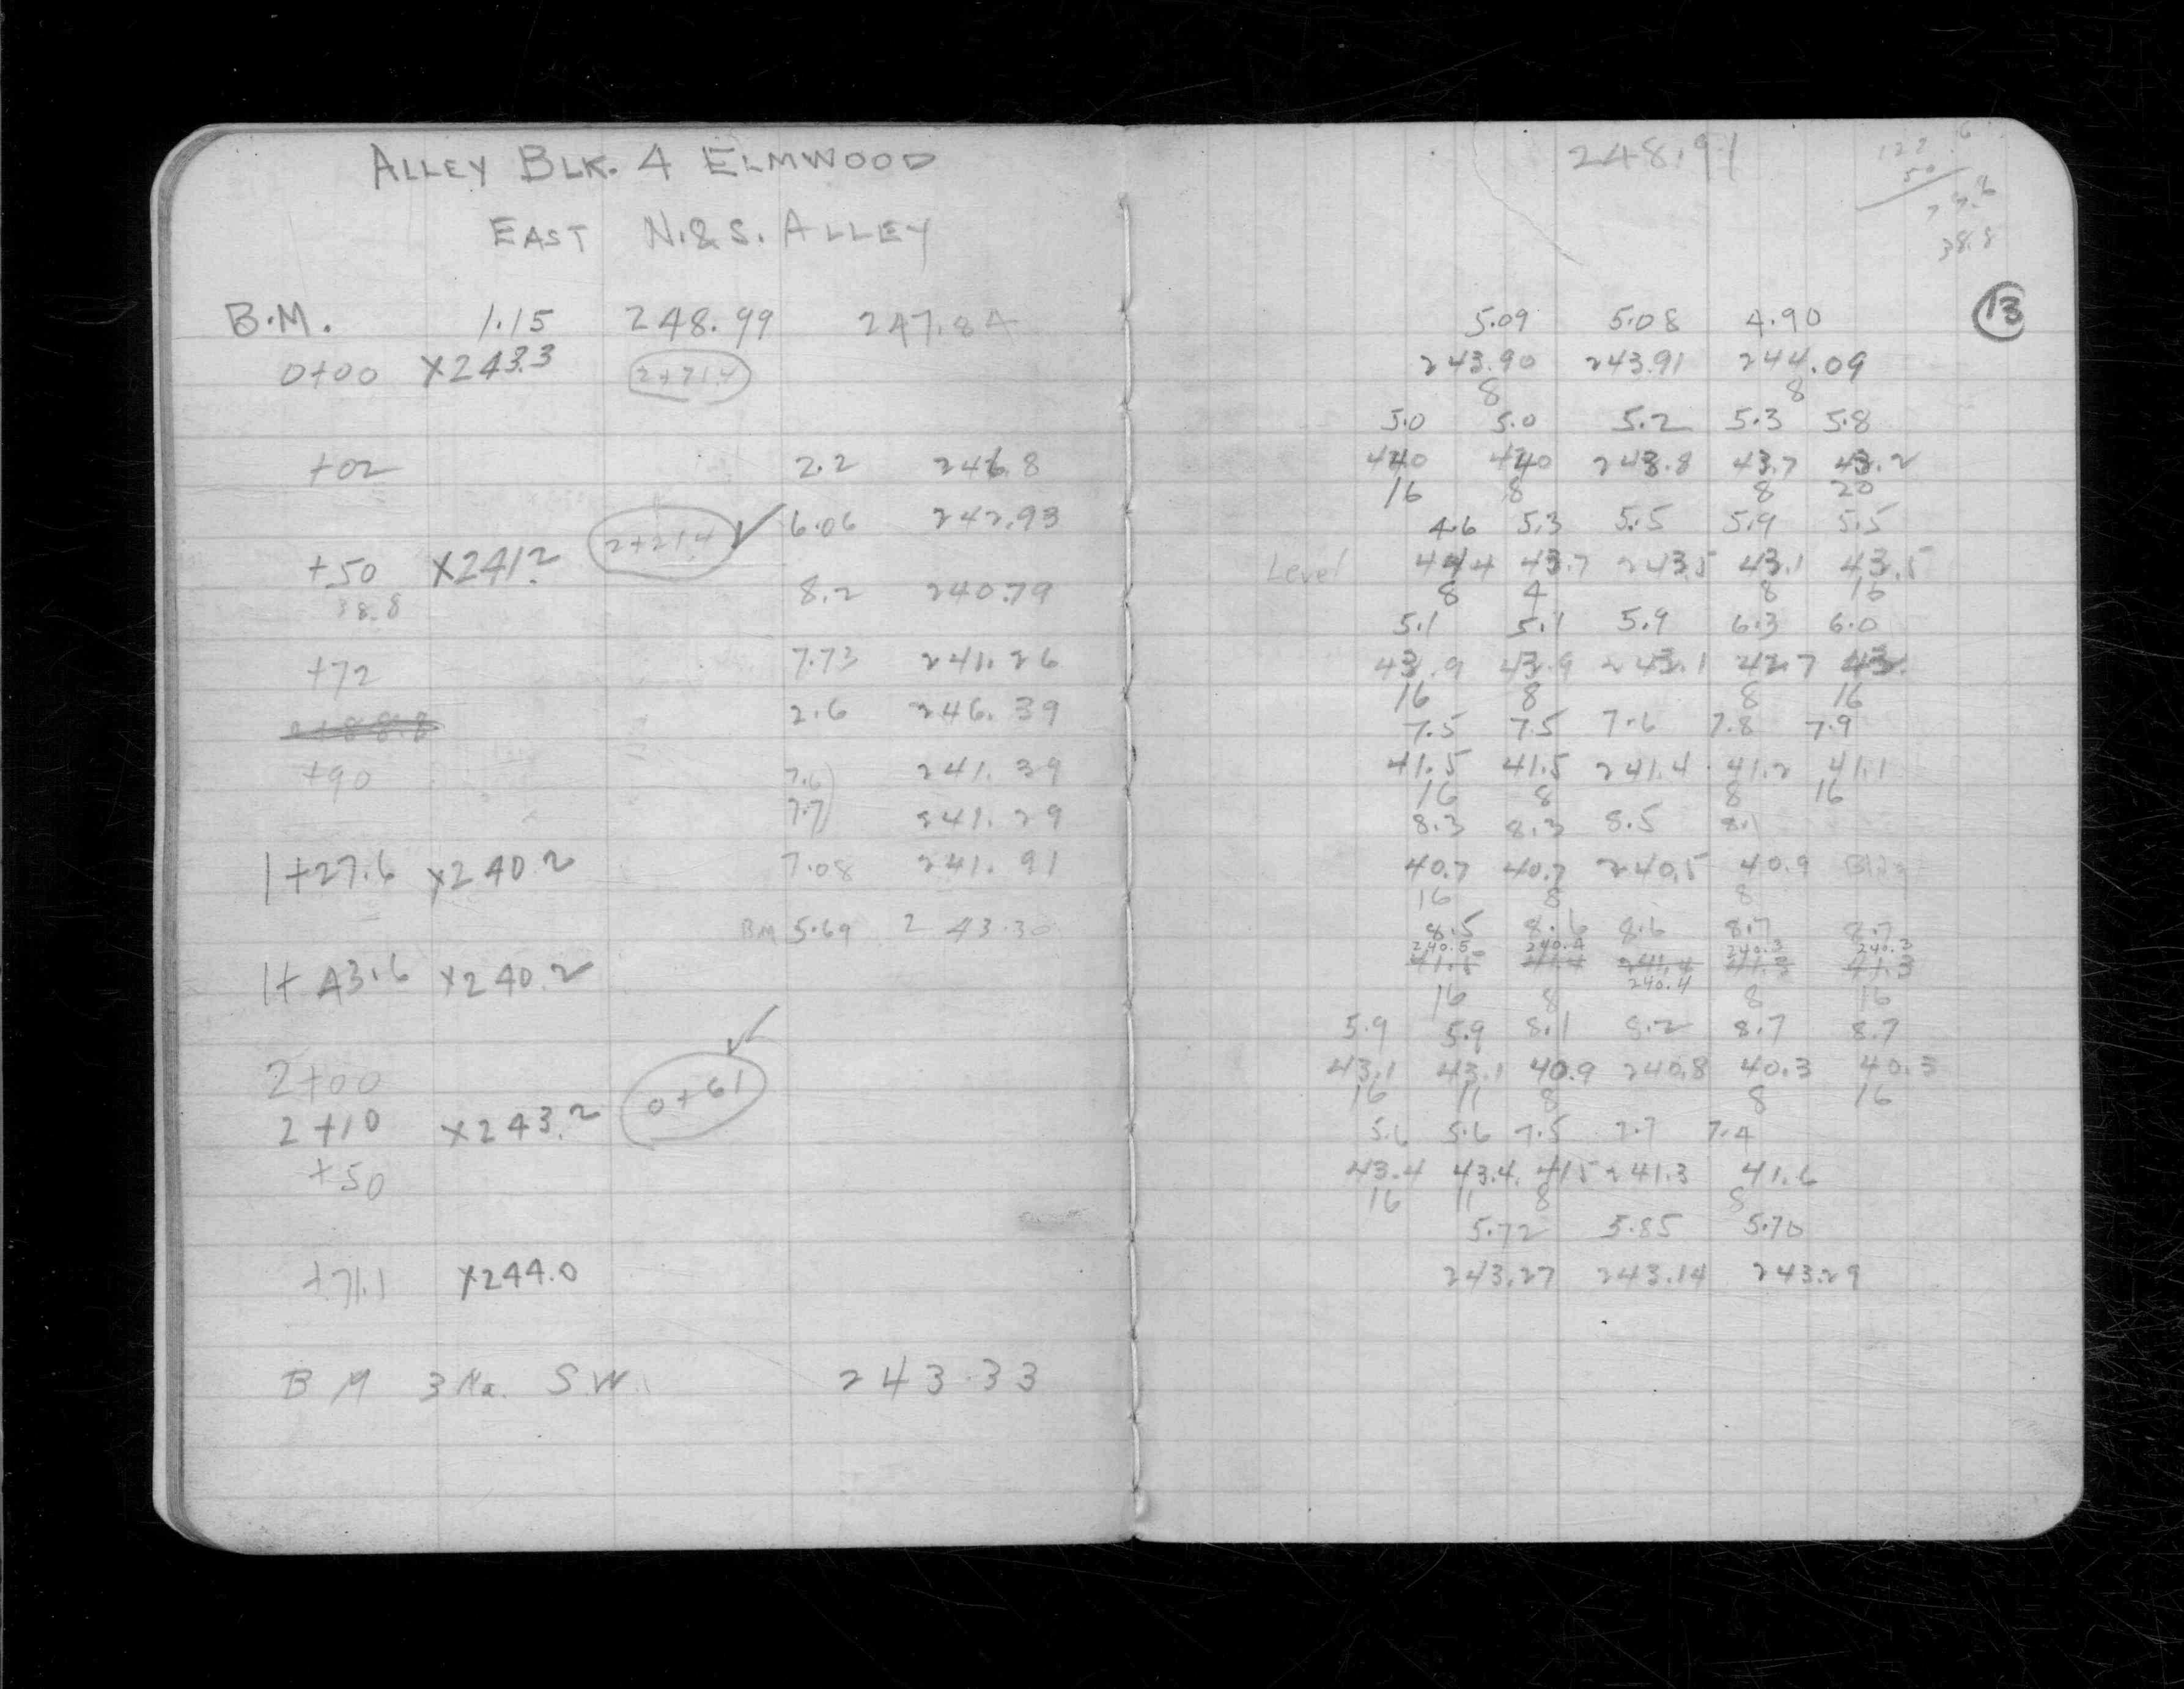 ALLEY BLK. 4 ELMWOOD
EAST N.&S. ALLEY
B.M. 1.15 248.99 247.84
0+00 X243.3 2+71.4
+02 2.2 246.8
6.06 242.93
+50 X241.2 2+21.4 ✓
38.8 8.2 240.79
+72 7.73 241.26
2.6 246.39
+90 7.6) 241.39
7.7) 241.29
1+27.6 X240.2 7.08 241.91
BM 5.69 243.30
1+43.6 X240.2
2+00
2+10 X243.2 0+61 ✓
+50
+71.1 X244.0
BM 3 Ha. S.W. 243.33
248.91
127.6
50
77.6
38.8
13
5.09 5.08 4.90
243.90 243.91 244.09
8 8
5.0 5.0 5.2 5.3 5.8
44.0 44.0 243.8 43.7 43.2
16 8 8 20
4.6 5.3 5.5 5.9 5.5
Level 44.4 43.7 243.5 43.1 43.5
8 4 8 16
5.1 5.1 5.9 6.3 6.0
43.9 43.9 243.1 42.7 43.
16 8 8 16
7.5 7.5 7.6 7.8 7.9
41.5 41.5 241.4 41.2 41.1
16 8 8 16
8.3 8.3 8.5 8.1
40.7 40.7 240.5 40.9 Bldg
16 8 8
8.5 8.6 8.6 8.7 8.7
240.5 240.4 240.3 240.3
41.5 41.4 241.4 41.3 41.3
240.4
16 8 8 16
5.9 5.9 8.1 8.2 8.7 8.7
43.1 43.1 40.9 240.8 40.3 40.3
16 11 8 8 16
5.6 5.6 7.5 7.7 7.4
43.4 43.4 41.5 241.3 41.6
16 11 8 8
5.72 5.85 5.70
243.27 243.14 243.29